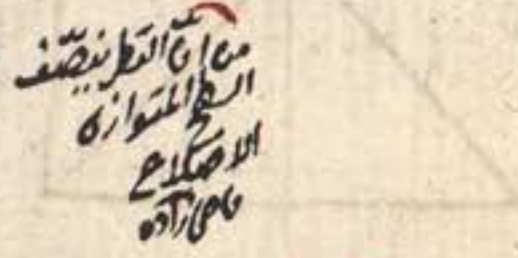 من انّ القطر ينصّف
السطح المتوازى
الاضلاع
قاضى زاده